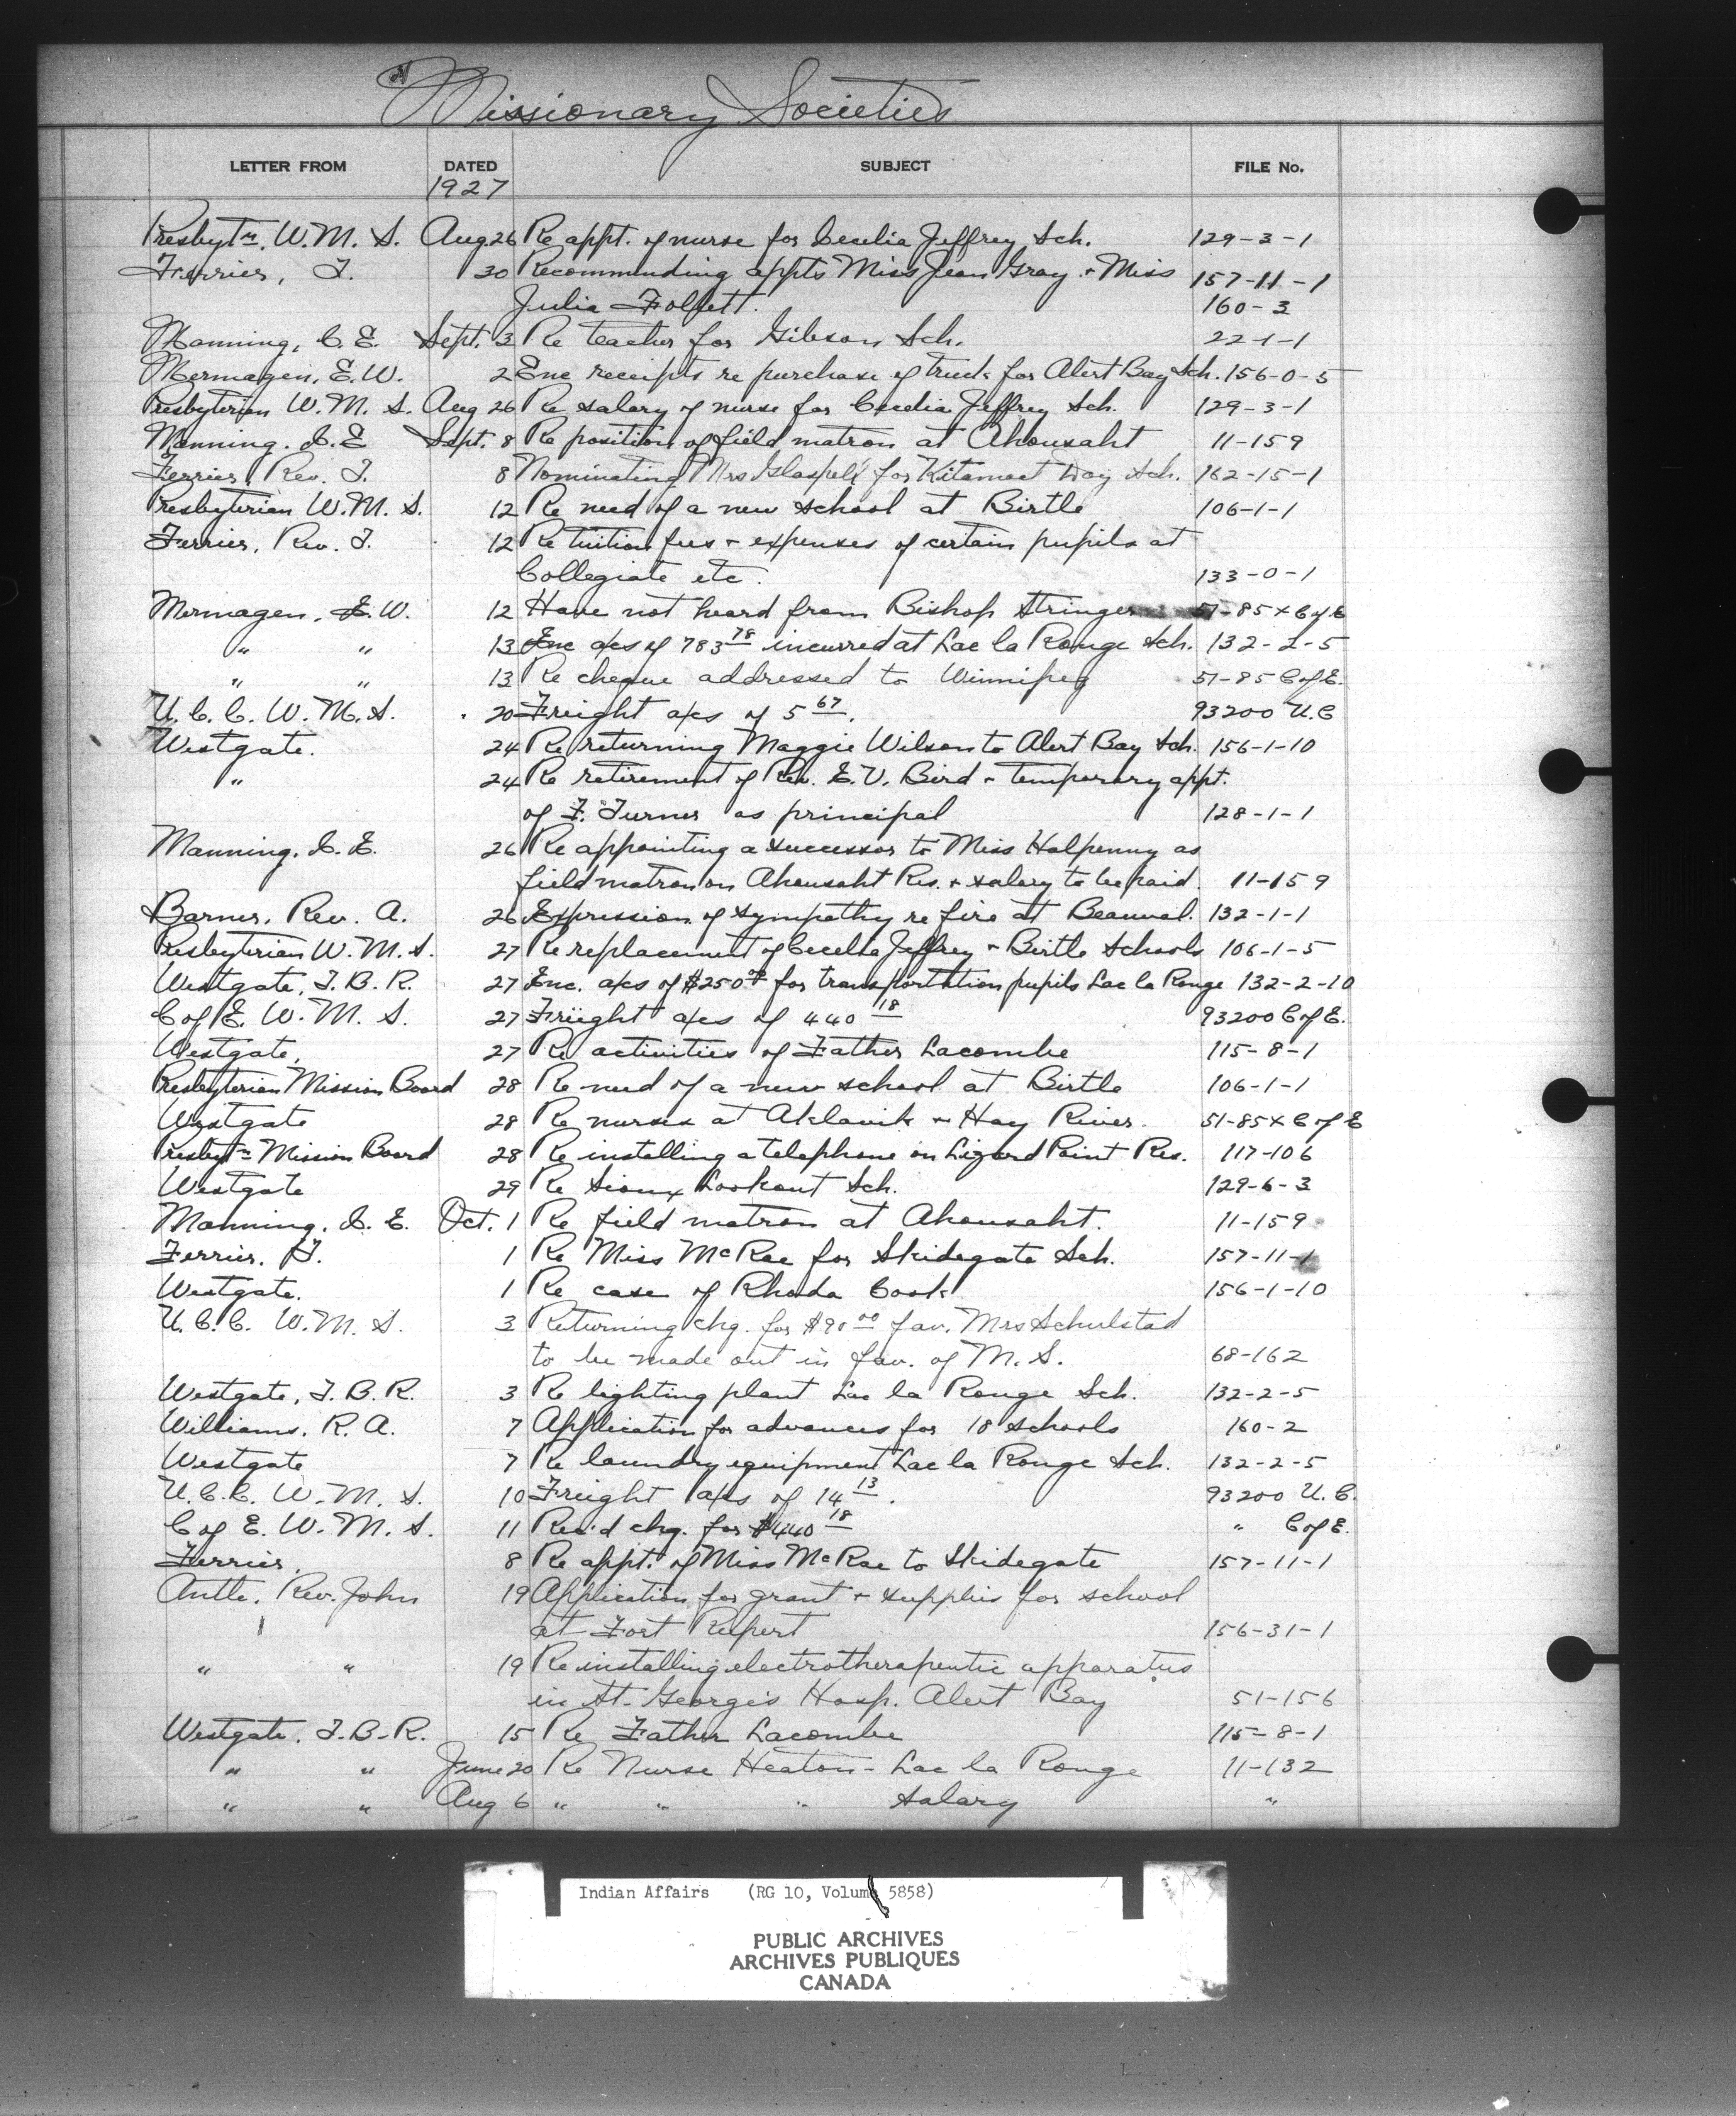 Missionary Societies
LETTER FROM DATED SUBJECT FILE No.
1927
Presbytn. W.M.S. Aug 26 Re appt. of nurse for Cecelia Jeffrey Sch. 129-3-1
Ferrier, T. 30 Recommending appts Miss Jean Gray + Miss 157-11-1
Julia 160-3
Manning, C.E. Sept. 3 Re teacher for Gibson Sch. 22-1-1
Mermagen, E.W. 2 Enc receipts re purchase of truck for Alert Bay Sch. 156-0-5
Presbyterian W.M.S. Aug 26 Re salary of nurse for Cecelia Jeffrey Sch. 129-3-1
Manning. C.E Sept. 8 Re position of field matron at Ahousaht 11-159
Ferrier, Rev. T. 8 Nominating Mrs Glaspell for Kitamaat Day Sch. 162-15-1
Presbyterian W.M.S. 12 Re need of a new school at Birtle 106-1-1
Ferrier, Rev. T. 12 Re tuition fees + expenses of certain pupils at
Collegiate etc. 133-0-1
Mermagen, E.W. 12 Have not heard from Bishop Stringer 51-85 x C of E
" " 13 Enc a/cs of 783 78 incurred at Lac la Ronge Sch. 132-2-5
" " 13 Re cheque addressed to Winnipeg 51-85 C of E.
U.C.C. W.M.S. 20 Freight a/cs of 5 67. 93200 U.C
Westgate. 24 Re returning Maggie Wilson to Alert Bay Sch. 156-1-10
" 24 Re retirement of Rev. E.V. Bird + temporary appt.
of F. Turner as principal 128-1-1
Manning. C.E. 26 Re appointing a successor to Miss Halpenny as
field matron on Ahousaht Res. + salary to be paid. 11-159
Barner, Rev. A. 26 Expression of sympathy re fire at Beauval. 132-1-1
Presbyterian W.M.S. 27 Re replacement of Cecelia Jeffrey + Birtle Schools 106-1-5
Westgate, T.B.R. 27 Enc. a/cs of $250 00 for transportation pupils Lac la Ronge 132-2-10
C of E. W.M.S. 27 Freight a/cs of 440 18 93200 C of E.
Westgate, 27 Re activities of Father Lacombe 115-8-1
Presbyterian Mission Board 28 Re need of a new school at Birtle 106-1-1
Westgate 28 Re nurses at Aklavik + Hay River. 51-85 x C of E
Presbytn Mission Board 28 Re installing a telephone on Lizard Point Res. 117-106
Westgate 29 Re Sioux Lookout Sch. 129-6-3
Manning, C.E. Oct. 1 Re field matron at Ahousaht. 11-159
Ferrier, T. 1 Re Miss McRae for Skidegate Sch. 157-11-1
Westgate. 1 Re case of Rhoda Cook. 156-1-10
U.C.C. W.M.S. 3 Returning chq. for $90 00 fav. Mrs Schulstad
to be made out in fav. of M.S. 68-162
Westgate, T.B.R. 3 Re lighting plant Lac la Ronge Sch. 132-2-5
Williams, R.A. 7 Application for advances for 18 schools 160-2
Westgate 7 Re laundry equipment Lac la Ronge Sch. 132-2-5
U.C.C. W.M.S. 10 Freight a/cs of 14 13. 93200 U.C.
C of E. W.M.S. 11 Rec'd chq. for $440 18 " C of E.
Ferrier, 8 Re appt. of Miss McRae to Skidegate 157-11-1
Antle, Rev. John 19 Application for grant + supplies for school
at Fort Rupert 156-31-1
" " 19 Re installing electrotherapeutic apparatus
in St. George's Hosp. Alert Bay 51-156
Westgate, T.B.R. 15 Re Father Lacombe 115-8-1
" " June 20 Re Nurse Heaton - Lac la Ronge 11-132
" " Aug 6 " " " salary "
Indian Affairs (RG 10, Volume 5858)
PUBLIC ARCHIVES
ARCHIVES PUBLIQUES
CANADA